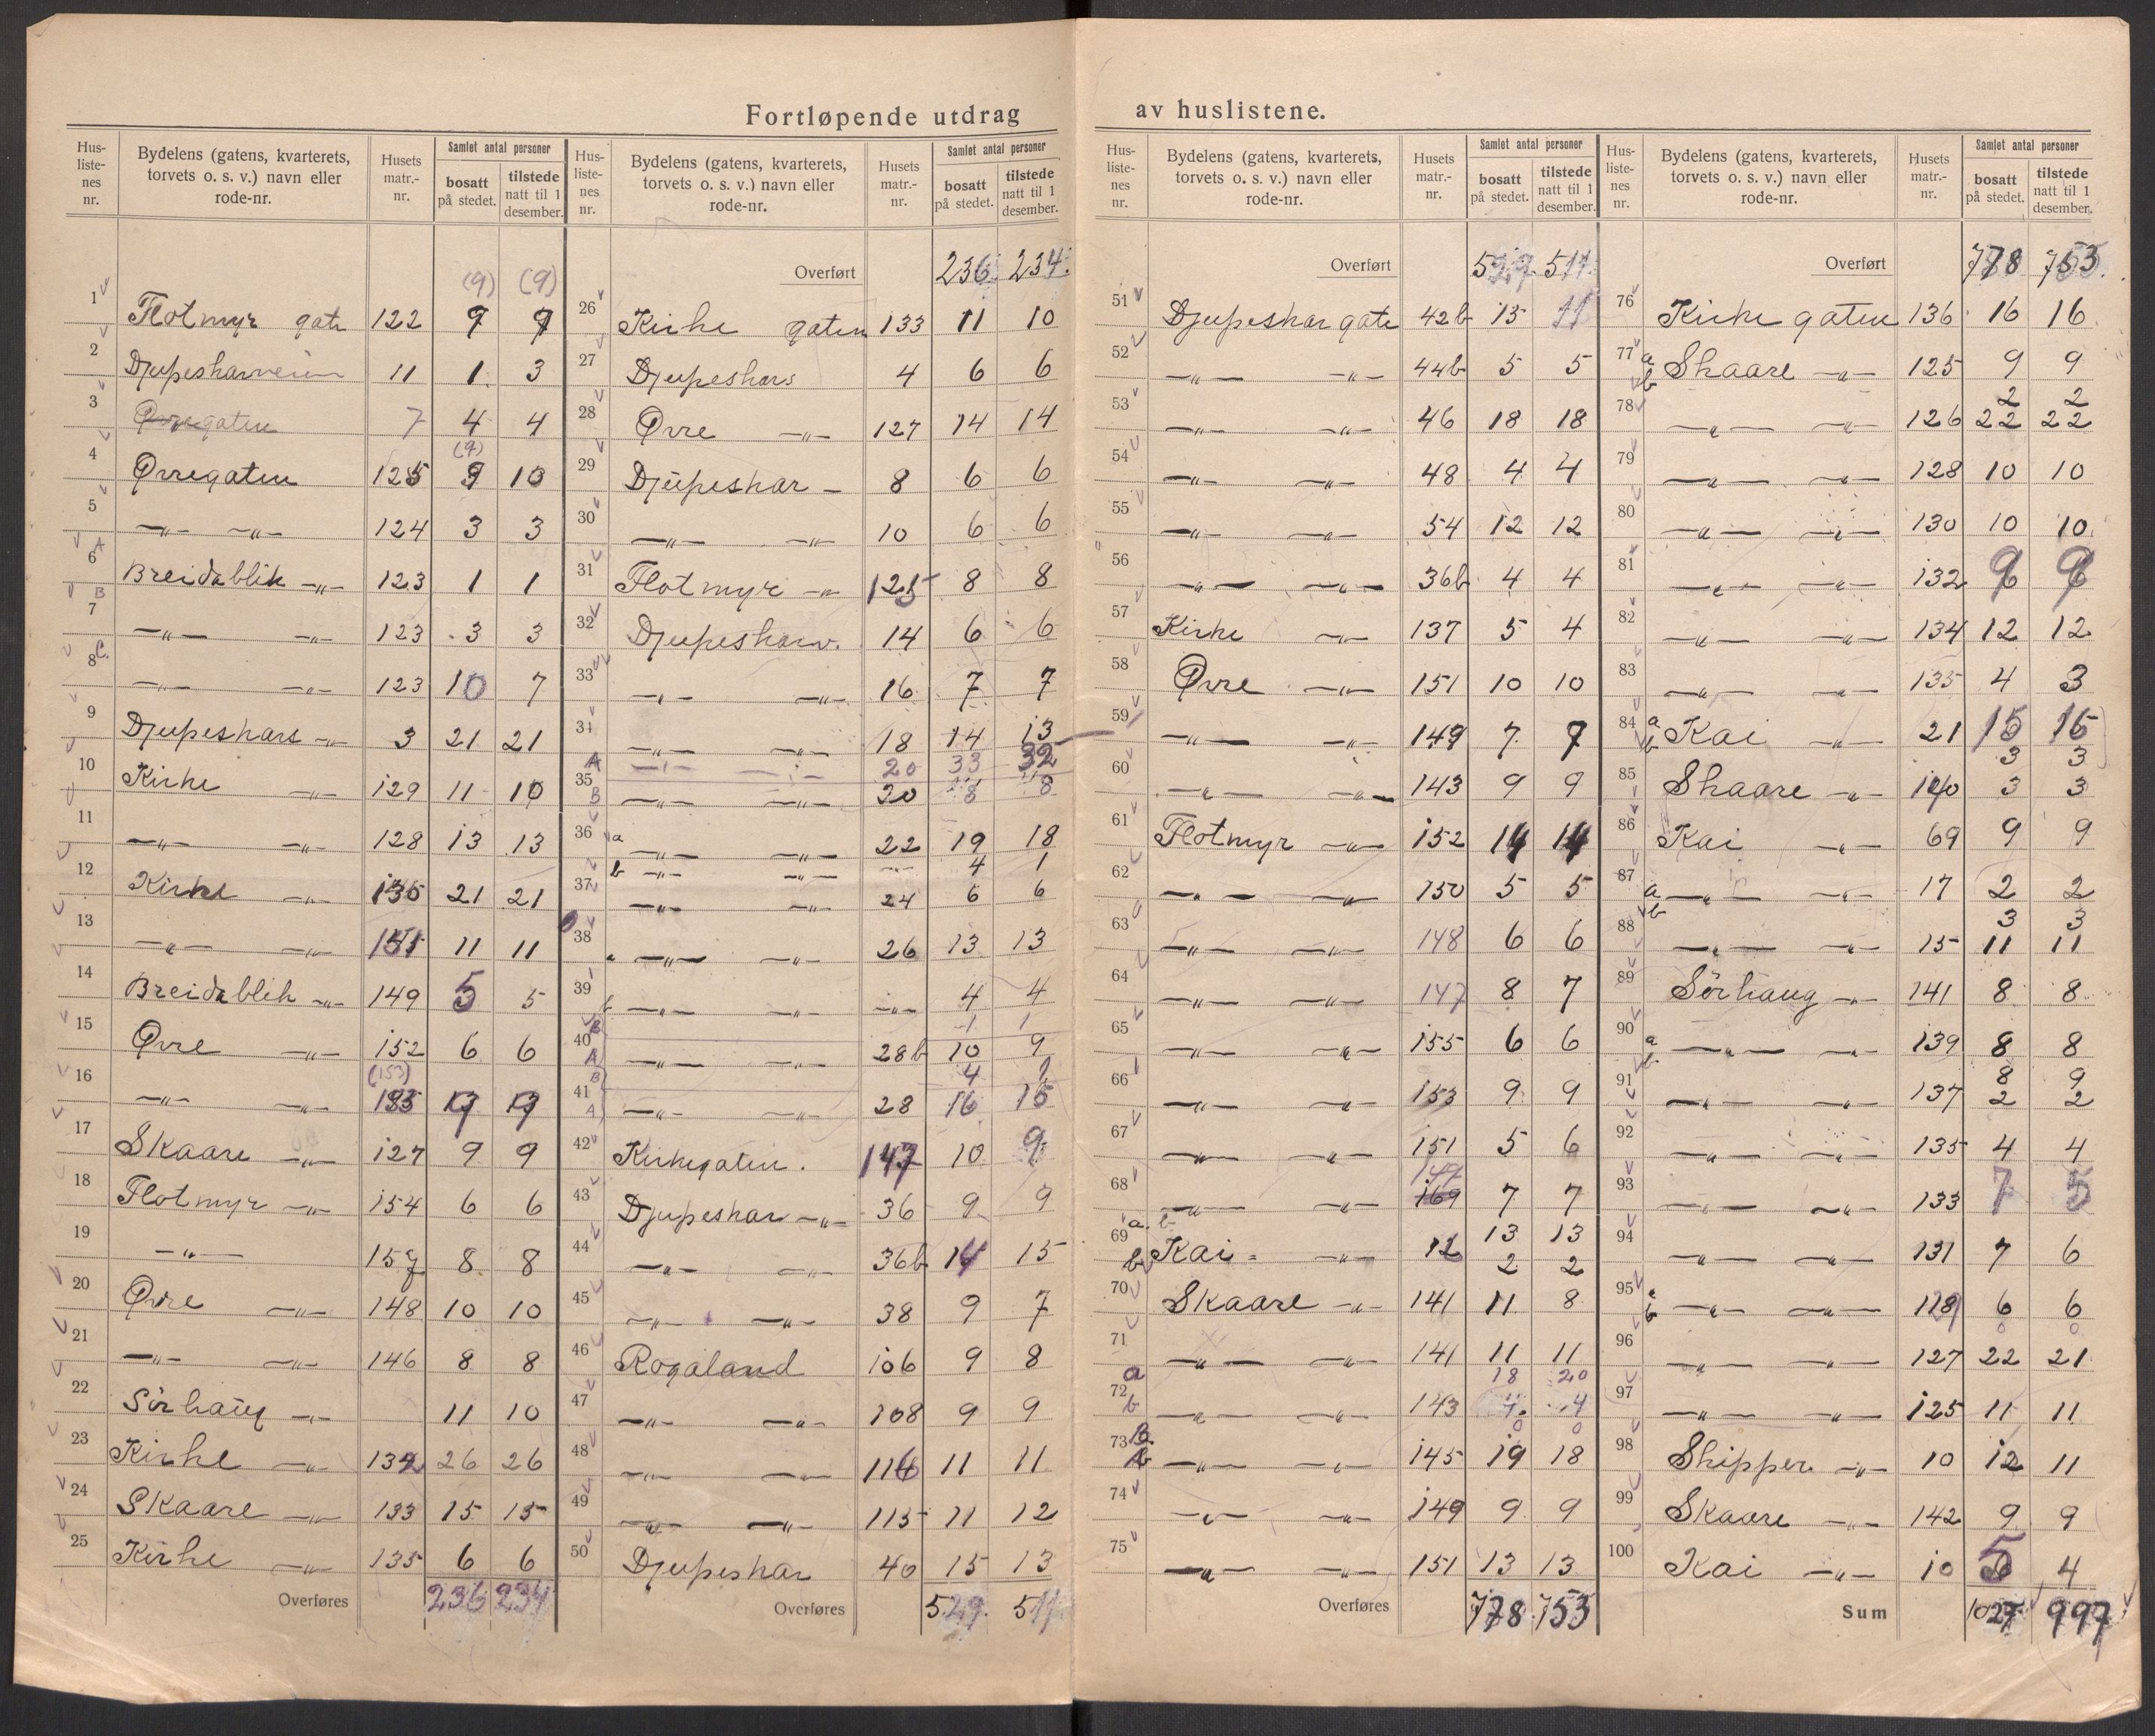 Fortløpende utdrag av huslistene.
Hus-liste-nes nr. Bydelens (gatens, kvarterets, torvets o. s. v.) navn eller rode-nr. Husets matr.-nr. Samlet antal personer bosatt på stedet. tilstede natt til 1 desember.
(9) (9)
1 Flotmyr gate 122 9 9
2 Djupesharveien 11 1 3
3 Øvregaten 7 4 4
(9)
4 Øvregaten 125 9 10
5 —„— —„— 124 3 3
6 A Breidablik —„— 123 1 1
7 B —„— —„— 123 3 3
8 C. —„— —„— 123 10 7
9 Djupeshars —„— 3 21 21
10 Kirke —„— 129 11 10
11 —„— —„— 128 13 13
12 Kirke —„— 21 21
13 —„— —„— 151 11 11
14 Breidablik —„— 149 5 5
15 Øvre —„— 152 6 6
(153)
16 —„— —„—
17 Skaare —„— 127 9 9
18 Flotmyr —„— 154 6 6
19 —„— 8 8
20 Øvre —„— 148 10 10
21 —„— —„— 146 8 8
22 Sørhaug —„— 11 10
23 Kirke —„— 26 26
24 Skaare —„— 133 15 15
25 Kirke —„— 135 6 6
Overføres 236 234
Hus-liste-nes nr. Bydelens (gatens, kvarterets, torvets o. s. v.) navn eller rode-nr. Husets matr.-nr. Samlet antal personer bosatt på stedet. tilstede natt til 1 desember.
Overført 236 234
26 Kirke gaten 133 11 10
27 Djupeshars 4 6 6
28 Øvre —„— 127 14 14
29 Djupeshar — 8 6 6
30 —„— —„— 10 6 6
31 Flotmyr —„— 125 8 8
32 Djupesharv. 14 6 6
33 —„— —„— 16 7 7
34 —„— —„— 18 14 13
A —„— —„— 20 33 32
35 B —„— —„— 20 8 8
36 a —„— —„— 22 19 18
b —„— —„— 4 1
37 —„— —„— 24 6 6
38 a —„— —„— 26 13 13
39 b —„— —„— —„— 4 4
B 1 1
40 A —„— —„— 28b 10 9
B 4 1
41 A —„— —„— 28 16 15
42 Kirkegaten. 147 10 9
43 Djupeshar —„— 36 9 9
44 —„— —„— 36b 14 15
45 —„— —„— 38 9 7
46 Rogaland 106 9 8
47 —„— —„— 108 9 9
48 —„— —„— 11 11
49 —„— —„— 115 11 12
50 Djupeshar 40 15 13
Overføres 529 511
Hus-liste-nes nr. Bydelens (gatens, kvarterets, torvets o. s. v.) navn eller rode-nr. Husets matr.-nr. Samlet antal personer bosatt på stedet. tilstede natt til 1 desember.
Overført 529 511
51 Djupeshar gate 42b 13 11
52 —„— —„— 44b 5 5
53 —„— —„— 46 18 18
54 —„— —„— 48 4 4
55 —„— —„— 54 12 12
56 —„— —„— 36b 4 4
57 Kirke —„— 137 5 4
58 Øvre —„— 151 10 10
59 —„— —„— 149 7 7
60 —„— —„— 143 9 9
61 Flotmyr —„— 152 14 14
62 —„— —„— 150 5 5
63 —„— —„— 148 6 6
64 —„— —„— 147 8 7
65 —„— —„— 155 6 6
66 —„— —„— 153 9 9
67 —„— —„— 151 5 6
149
68 —„— —„— 169 7 7
69 a. Kai —„— 12 13 13
b 2 2
70 Skaare —„— 141 11 8
71 —„— —„— 141 11 11
a 18 20
72 b —„— —„— 143 4 4
B 0 0
73 A —„— —„— 145 19 18
74 —„— —„— 149 9 9
75 —„— —„— 151 13 13
Overføres 778 753
Hus-liste-nes nr. Bydelens (gatens, kvarterets, torvets o. s. v.) navn eller rode-nr. Husets matr.-nr. Samlet antal personer bosatt på stedet. tilstede natt til 1 desember.
Overført 778 753
76 Kirke gaten 136 16 16
77 a Skaare —„— 125 9 9
b 2 2
78 —„— —„— 126 22 22
79 —„— —„— 128 10 10
80 —„— —„— 130 10 10
81 —„— —„— 132 9 9
82 —„— —„— 134 12 12
83 —„— —„— 135 4 3
84 a Kai —„— 21 15 15
b 3 3
85 Skaare —„— 140 3 3
86 Kai —„— 69 9 9
87 a —„— —„— 17 2 2
b 3 3
88 —„— —„— 15 11 11
89 Sørhaug —„— 141 8 8
90 a —„— —„— 139 8 8
b 8 9
91 —„— —„— 137 2 2
92 —„— —„— 135 4 4
93 —„— —„— 133 7 5
94 —„— —„— 131 7 6
95 a —„— —„— 6 6
b 0 0
96 —„— —„— 127 22 21
97 —„— —„— 125 11 11
98 Skipper —„— 10 12 11
99 Skaare —„— 142 9 9
100 Kai —„— 10 5 4
Sum 1027 997